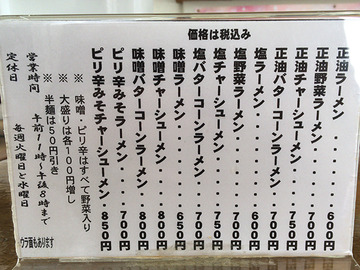 価格は税込み
正油ラーメン・・・・・・600円
正油野菜ラーメン・・・・700円
正油チャーシューメン・・750円
正油バターコーンラーメン・700円
塩ラーメン・・・・・・・600円
塩野菜ラーメン・・・・・700円
塩チャーシューメン・・・750円
塩バターコーンラーメン・・700円
味噌ラーメン・・・・・・650円
味噌チャーシューメン・・800円
味噌バターコーンラーメン・800円
ピリ辛みそラーメン・・・700円
ピリ辛みそチャーシューメン・850円
※ 味噌・ピリ辛はすべて野菜入り
※ 大盛りは各100円増し
※ 半麺は50円引き
営業時間 午前11時～午後8時まで
定休日 毎週火曜日と水曜日
ウラ面もあります